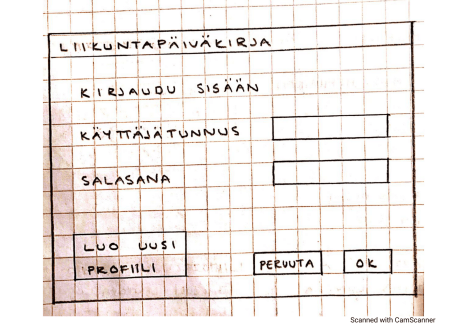 LIIKUNTAPÄIVÄKIRJA
KIRJAUDU SISÄÄN
KÄYTTÄJÄTUNNUS
SALASANA
LUO UUSI
PROFIILI
PERUUTA
OK
Scanned with CamScanner